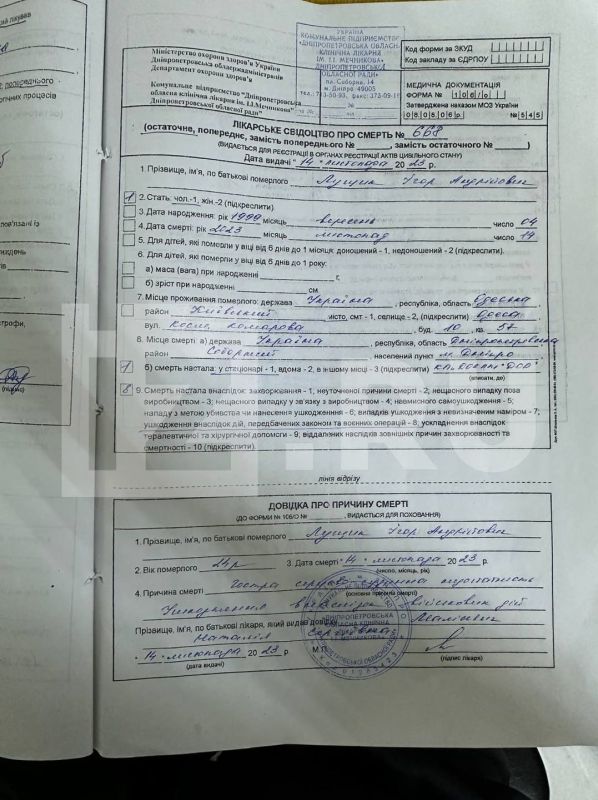 УКРАЇНА
КОМУНАЛЬНЕ ПІДПРИЄМСТВО
«ДНІПРОПЕТРОВСЬКА ОБЛАСНА
КЛІНІЧНА ЛІКАРНЯ
ІМ. І.І. МЕЧНИКОВА»
ДНІПРОПЕТРОВСЬКОЇ
ОБЛАСНОЇ РАДИ»
пл. Соборна, 14
м. Дніпро 49005
Міністерство охорони здоров'я України
Дніпропетровська облдержадміністрація
Департамент охорони здоров'я
Комунальне підприємство "Дніпропетровська
обласна клінічна лікарня ім. І.І.Мечникова"
Дніпропетровської обласної ради"
Код форми за ЗКУД
Код закладу за ЄДРПОУ
МЕДИЧНА ДОКУМЕНТАЦІЯ
ФОРМА № 106/о
Затверджена наказом МОЗ України
08.08.06 р. № 545
ЛІКАРСЬКЕ СВІДОЦТВО ПРО СМЕРТЬ № 668
(остаточне, попереднє, замість попереднього №, замість остаточного №)
(ВИДАЄТЬСЯ ДЛЯ РЕЄСТРАЦІЇ В ОРГАНАХ РЕЄСТРАЦІЇ АКТІВ ЦИВІЛЬНОГО СТАНУ)
Дата видачі "14" листопада 2023 р.
1. Прізвище, ім'я, по батькові померлого Лущик Ігор Андрійович
1 2. Стать: чол.-1, жін.-2 (підкреслити)
3. Дата народження: рік 1999 місяць вересень число 04
4. Дата смерті: рік 2023 місяць листопад число 14
5. Для дітей, які померли у віці від 6 днів до 1 місяця: доношений - 1, недоношений - 2 (підкреслити).
6. Для дітей, які померли у віці від 6 днів до 1 року:
а) маса (вага) при народженні г,
б) зріст при народженні см
7. Місце проживання померлого: держава Україна, республіка, область Одеська
район Київський місто, смт - 1, селище - 2, (підкреслити) Одеса
вул. Косм. Комарова буд. 10, кв. 57
8. Місце смерті: а) держава Україна, республіка, область Дніпропетровська
район Соборний, населений пункт м. Дніпро
1 б) смерть настала: у стаціонарі - 1, вдома - 2, в іншому місці - 3 (підкреслити)
(вписати, де)
8 9. Смерть настала внаслідок: захворювання - 1, неуточненої причини смерті - 2, нещасного випадку поза
виробництвом - 3; нещасного випадку у зв'язку з виробництвом - 4; навмисного самоушкодження - 5;
нападу з метою убивства чи нанесення ушкодження - 6; випадків ушкодження з невизначеним наміром - 7;
ушкодження внаслідок дій, передбачених законом та воєнних операцій - 8; ускладнення внаслідок
терапевтичної та хірургічної допомоги - 9; віддалених наслідків зовнішніх причин захворюваності та
смертності - 10 (підкреслити).
лінія відрізу
ДОВІДКА ПРО ПРИЧИНУ СМЕРТІ
(ДО ФОРМИ № 106/О №, ВИДАЄТЬСЯ ДЛЯ ПОХОВАННЯ)
1. Прізвище, ім'я, по батькові померлого Лущик Ігор Андрійович
2. Вік померлого 24 р 3. Дата смерті "14" листопада 2023 р.
(число, місяць, рік)
4. Причина смерті Гостра серцево судинна недостатність
(основна причина смерті)
Ушкодження внаслідок військових дій
Прізвище, ім'я, по батькові лікаря, який видав довідку
Наталія Сергіївна
"14" листопада 2023 р. М.П.
(дата видачі) (підпис лікаря)